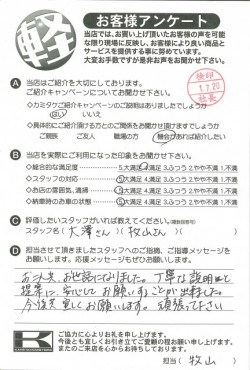 軽
お客様アンケート
当店では、お買い上げ頂いたお客様の声を可能
な限り現場に反映し、お客様により良い商品と
サービスを提供する事に努めています。
大変お手数ですが是非お声をお聞かせ下さい。
検印
1.7.20
社長
A 当店はご紹介を大切にしております。
ご紹介キャンペーンについてお聞かせ下さい。
◇カミタケご紹介キャンペーンのご説明はありましたでしょうか
はい いいえ
◇具体的にご紹介頂ける方との ご関係をお聞かせ頂けますでしょうか
ご親族 ご友人 職場の方 機会があれば紹介したい
B 当店を実際にご利用になられた印象をお聞かせ下さい。
◇総合的な満足度 5.大満足 4.満足 3.ふつう 2.やや不満 1.不満
◇スタッフの対応 5.大満足 4.満足 3.ふつう 2.やや不満 1.不満
◇お店の雰囲気、清掃 5.大満足 4.満足 3.ふつう 2.やや不満 1.不満
◇納車時のお車の状態 5.大満足 4.満足 3.ふつう 2.やや不満 1.不満
C 評価したいスタッフがいれば教えてください。(複数回答可)
スタッフ名( 大澤さん )( 牧山さん )
D 担当させて頂きましたスタッフへのご指摘、ご指導メッセージを
お願いします。応援メッセージもぜひお聞かせ下さい。
お世話になりました。丁寧な説明と
提案に、安心してお願いすることが出来ました。
今後共宜しくお願いします。頑張って下さい
K
ご協力に心よりお礼を申し上げます。
今後とも宜しくお引き立てご愛顧の程お願い申し上げます。
またのご来店を心からお待ちしております。
担当( 牧山 )